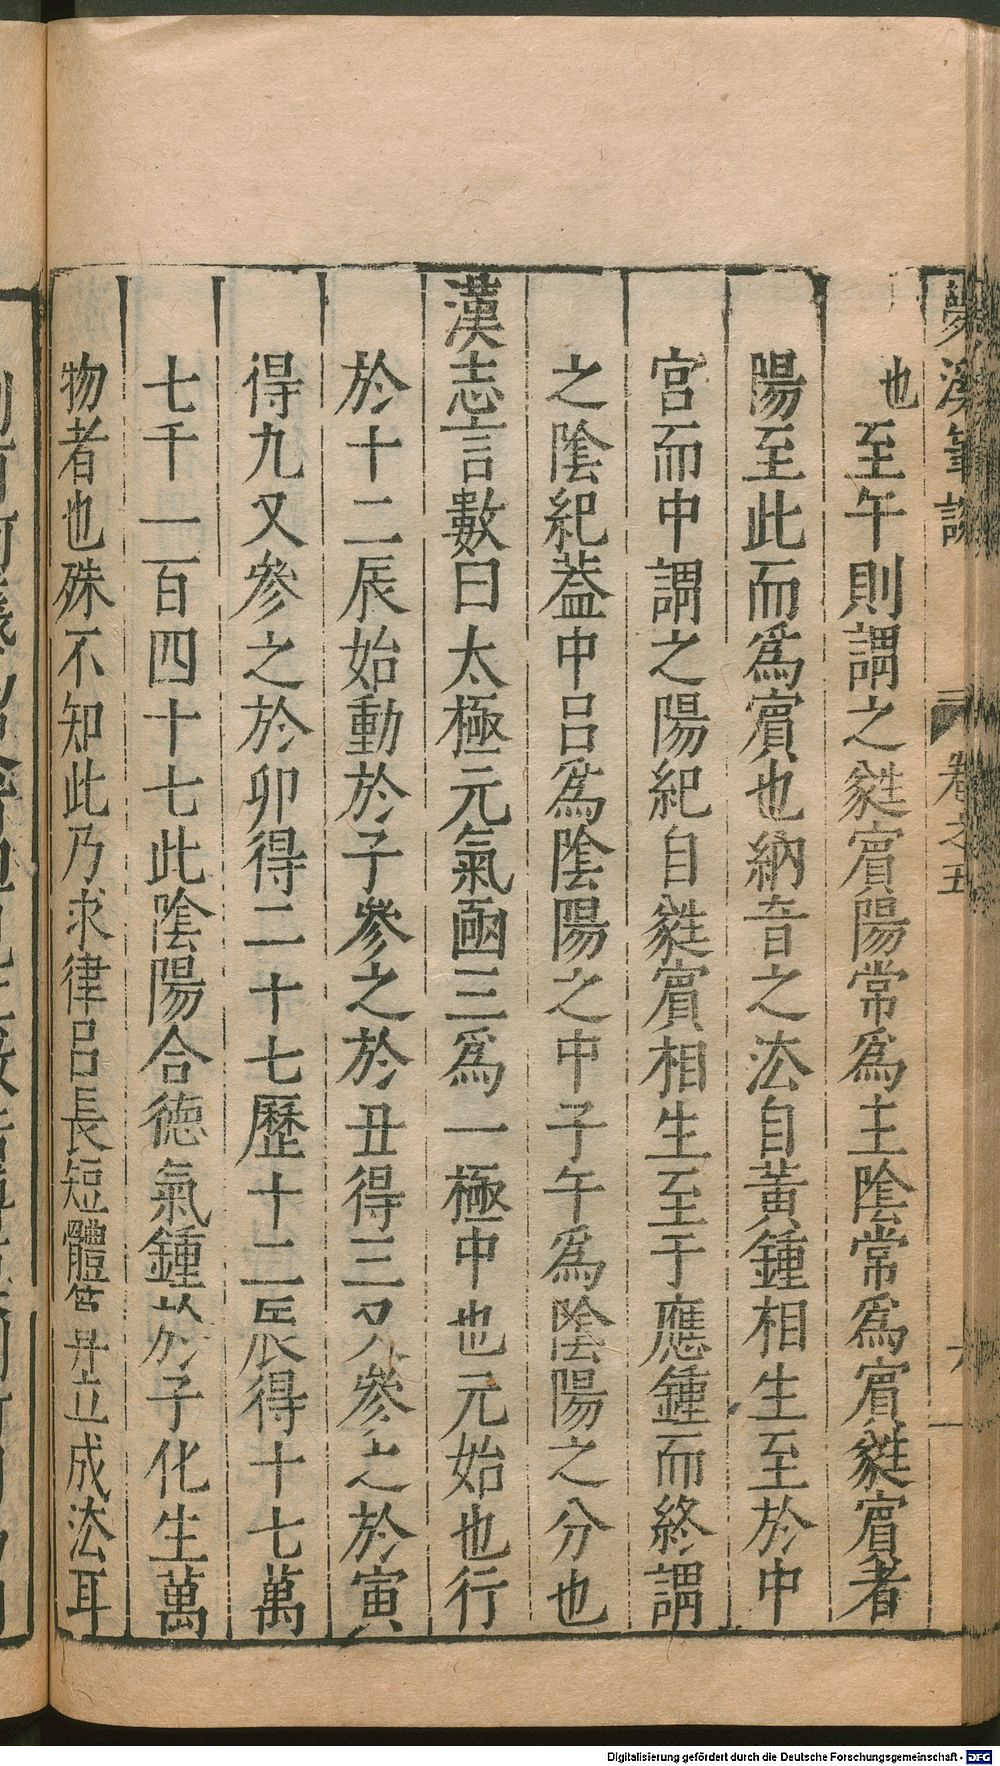 夢溪筆談 卷之五 六
也至午則謂之蕤賓陽常爲主陰常爲賓蕤賓者
陽至此而爲賓也納音之法自黃鍾相生至於中
宮而中謂之陽紀自蕤賓相生至于應鍾而終謂
之陰紀蓋中呂爲陰陽之中子午爲陰陽之分也
漢志言數曰太極元氣函三爲一極中也元始也行
於十二辰始動於子參之於丑得三又參之於寅
得九又參之於卯得二十七歷十二辰得十七萬
七千一百四十七此陰陽合德氣鍾於子化生萬
物者也殊不知此乃求律呂長短體筭并立成法耳
Digitalisierung gefördert durch die Deutsche Forschungsgemeinschaft - DFG